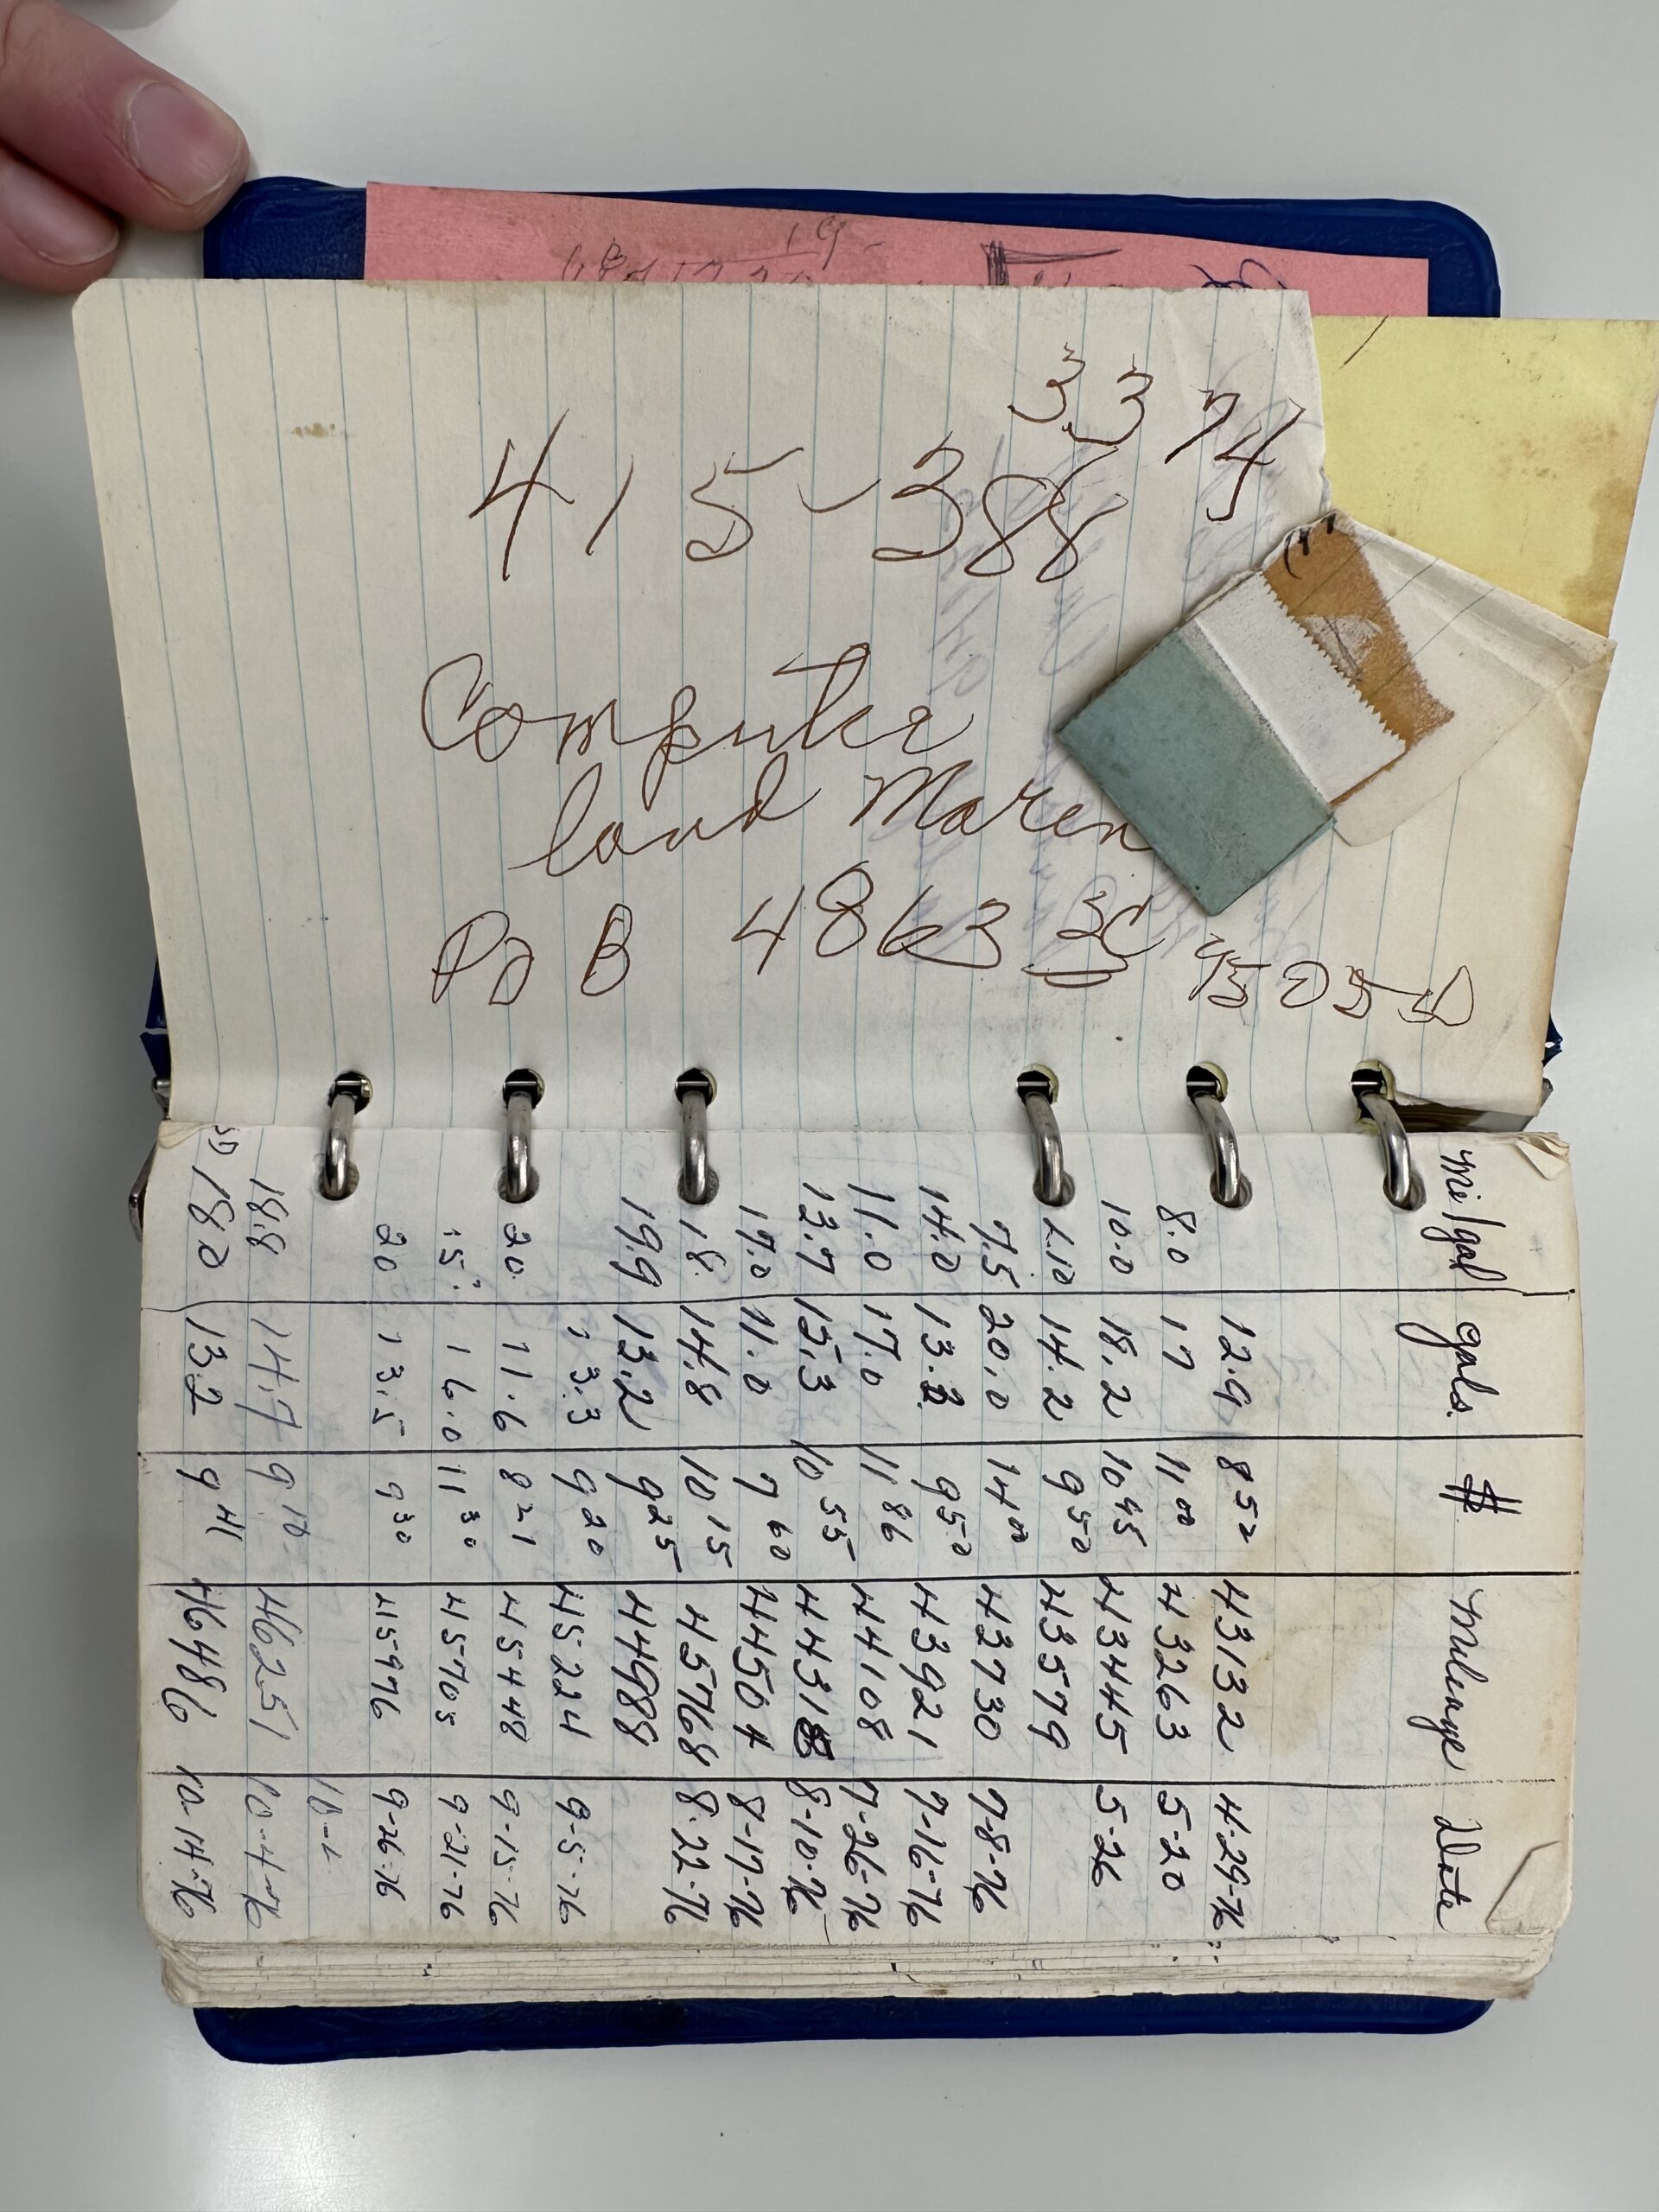 3374
415-388
Computer
land Maren
PO B 4863
Date Mileage $ gals. Mi/gal
4-29-76 43132 8 50 12.9
5-20 43263 11 00 17 8.0
5-26 43445 10 45 18.2 10.0
43579 9 50 14.2
7-8-76 43730 14 00 20.0 7.5
7-16-76 43921 9 50 13.2 14.0
7-26-76 44108 11 86 17.0 11.0
8-10-76 44318 10 55 15.3 13.7
8-17-76 44504 7 60 11.0 17.0
8-22-76 45768 10 15 14.8 18.
44988 9 25 13.2 19.9
9-5-76 45224 9 20 13.3
9-15-76 45448 8 21 11.6 20.
9-21-76 45705 11 30 16.0 15?
9-26-76 45976 9 30 13.5 20
10-1
10-4-76 46251 9 10 14.7 18.8
10-14-76 46486 9 41 13.2 18.0